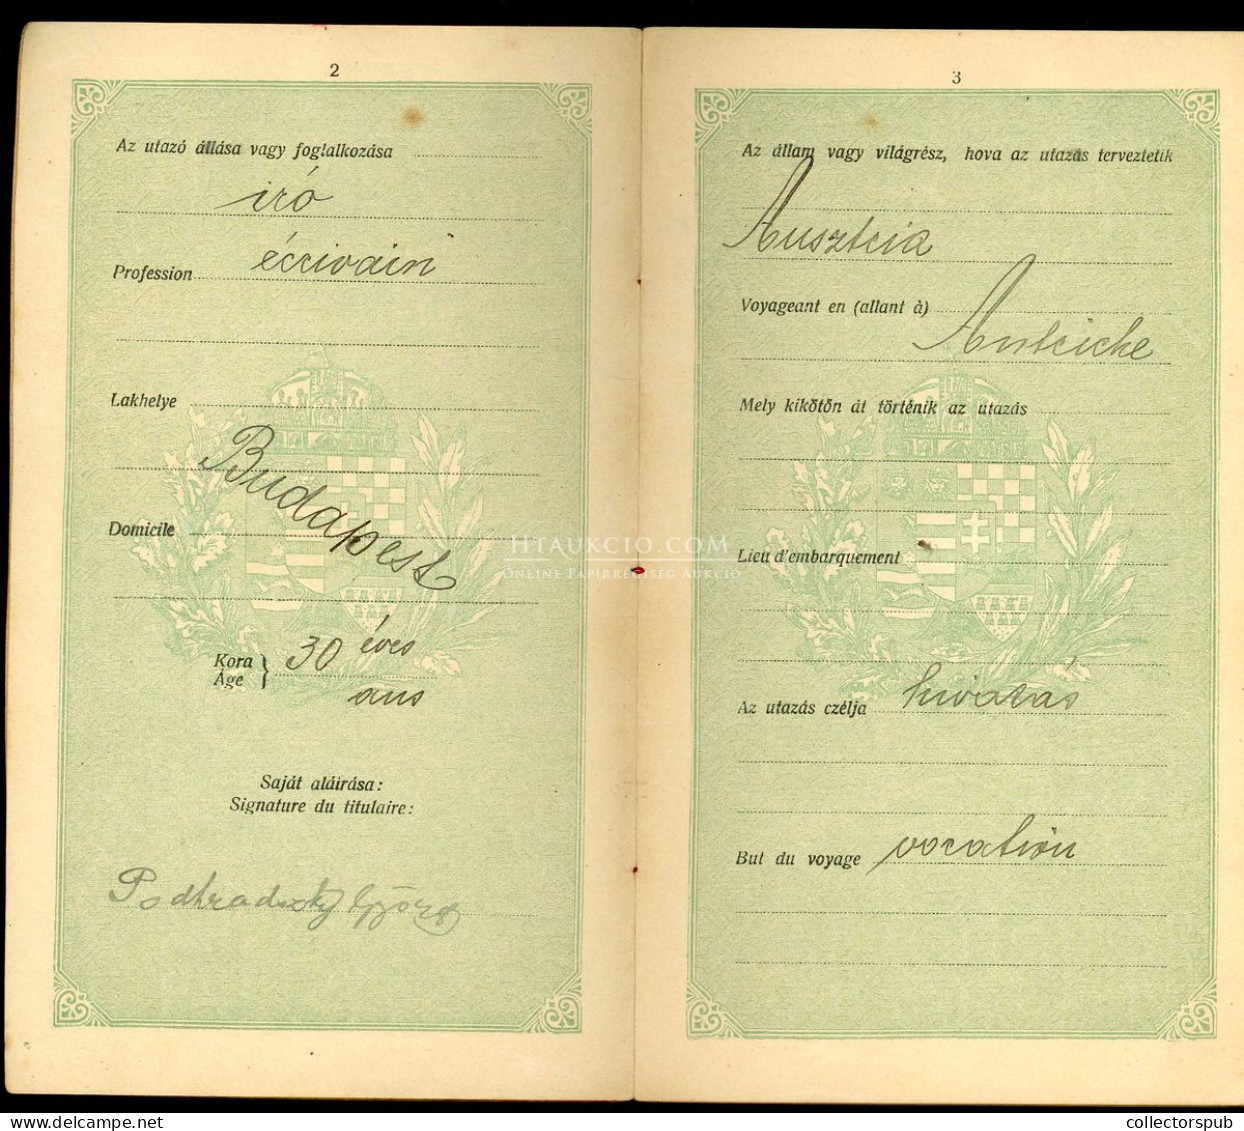 2
Az utazó állása vagy foglalkozása
író
Profession écrivain
Lakhelye
Budapest
Domicile
Kora 30 éves
Âge ans
Saját aláirása:
Signature du titulaire:
Podhradszky György
3
Az állam vagy világrész, hova az utazás terveztetik
Ausztria
Voyageant en (allant à)
Autriche
Mely kikötőn át történik az utazás
Lieu d'embarquement
Az utazás czélja hivatás
But du voyage vocation
HTAUKCIO.COM
ONLINE PAPÍRRÉGISÉG AUKCIÓ
collectorspub